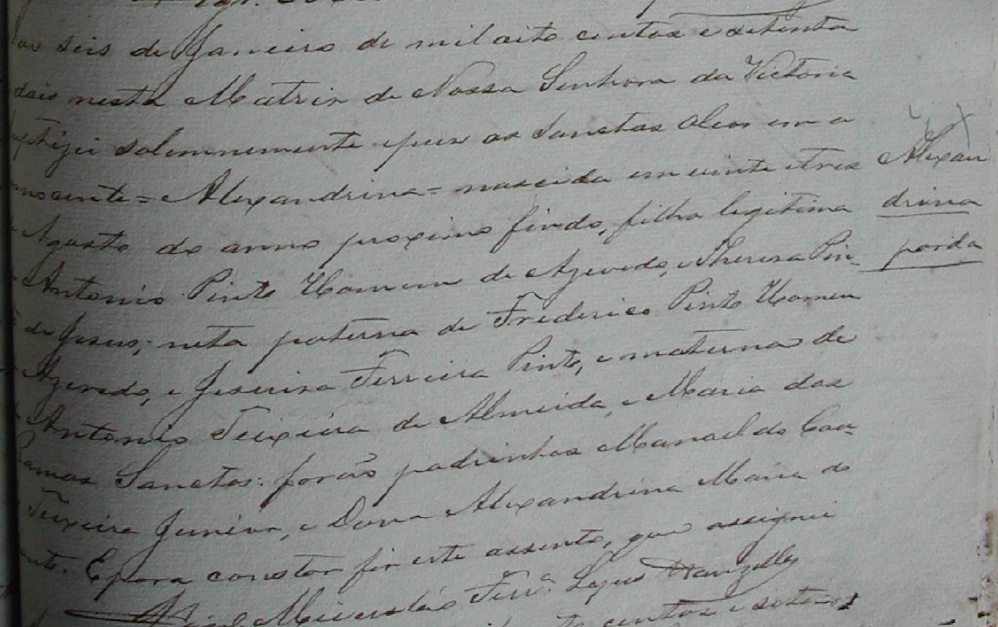 seis de Janeiro de mil oito centos e setenta
dois nesta Matriz de Nossa Senhora da Victoria
baptizei solemnemente e puz os Sanctos Oleos em a
innocente = Alexandrina = nascida em vinte e tres
Agosto do anno proximo findo, filha legitima
Antonio Pinto Homem de Azevedo, e Theresa Pin-
de Jesus; neta paterna de Frederico Pinto Homem
Azevedo, e Ferreira Pinto, e materna de
Antonio Teixeira de Almeida, e Maria dos
Ramos Sanctos: forão padrinhos Manoel do Cou-
Teixeira Junior, e Dona Alexandrina Maria do
E para constar fiz este assento, que assignei
Ferr.ª
centos e seten
Alexan
drina
parda